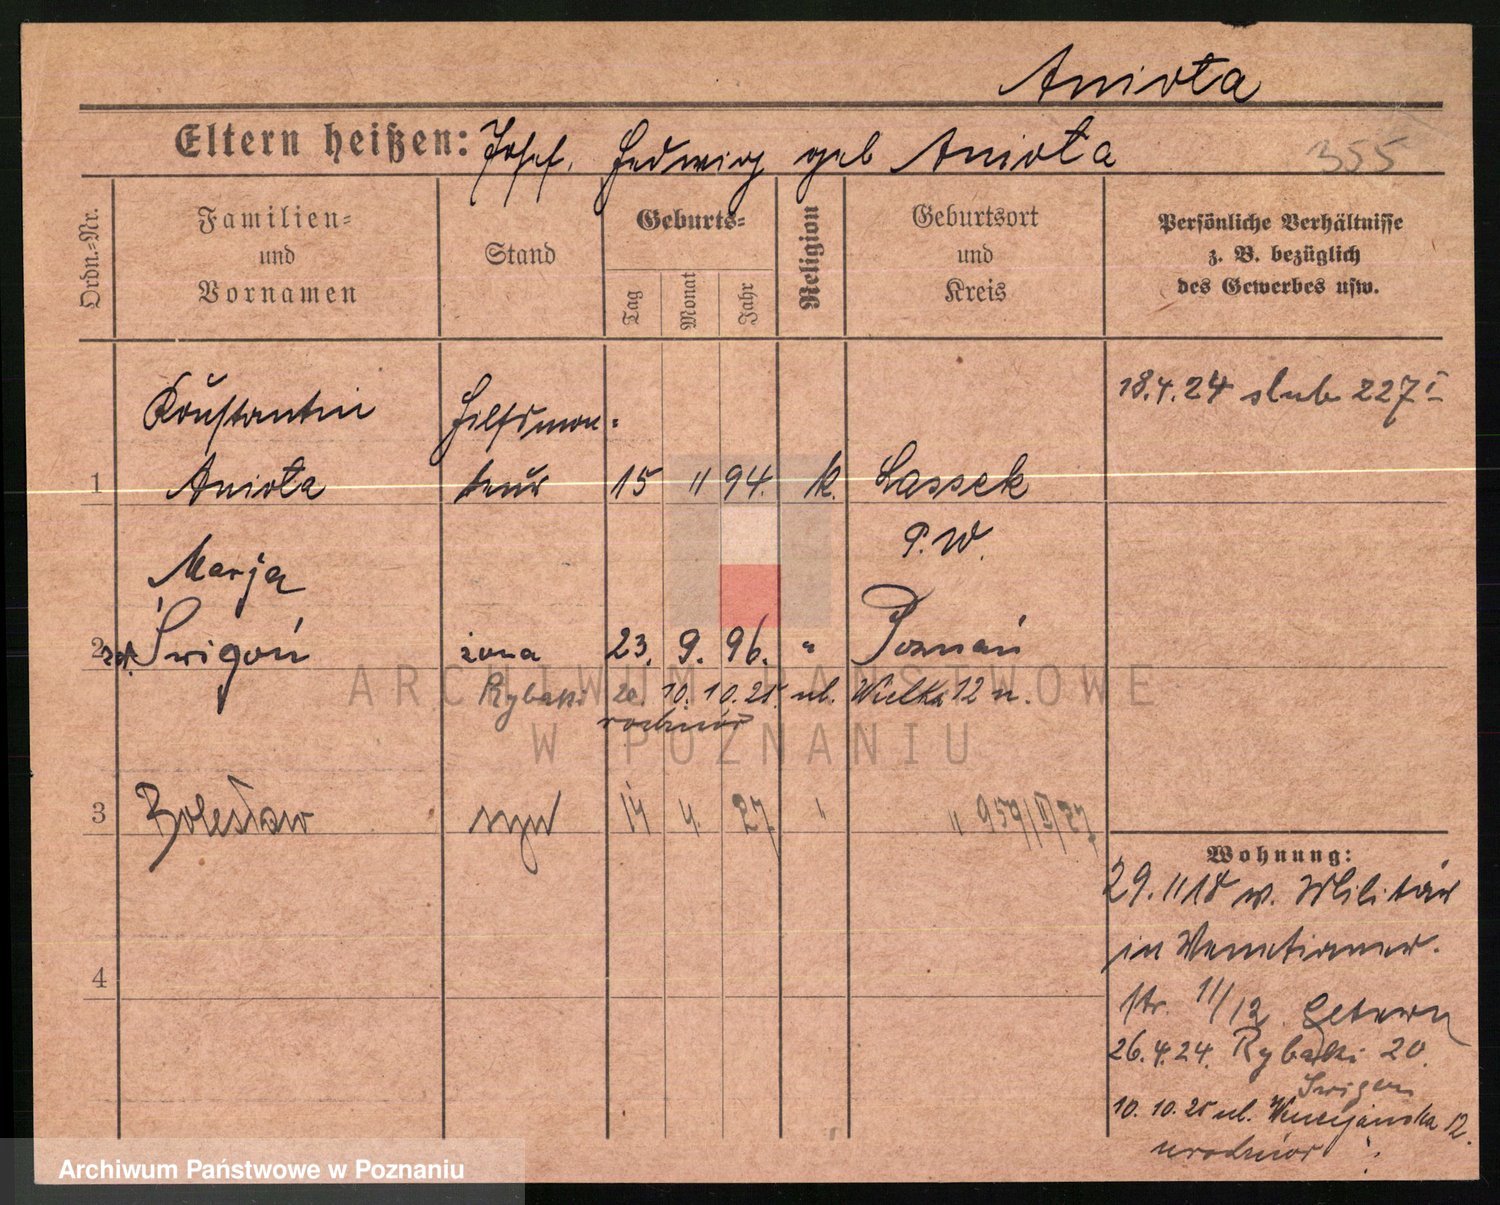 Anioła
Eltern heißen: Josef, Hedwig geb Anioła
355
Ordn.-Nr.
Familien-
und
Vornamen
Stand
Geburts-
Tag
Monat
Jahr
Religion
Geburtsort
und
Kreis
Persönliche Verhältnisse
z. B. bezüglich
des Gewerbes usw.
18.4.24 slub 227 I
Konstantin Hilfsmon-
1 Anioła teur 15 11 94. k. Lassek
P. W.
Marja
2 Świgoń żona 23. 9. 96. " Poznań
Rybaki 20. 10.10.25. ul. Wielka 12 u.
rodziców
3 Bolesław syn 14 4. 27 " " 959/II/27
4
Wohnung:
29. 11 18 v. Militär
in Venetianer-
str. 11/12 Eltern
26.4.24. Rybaki 20.
Swigon
10.10.25 ul. Wenecjańska 12.
u rodziców
ARCHIWUM PAŃSTWOWE
W POZNANIU
Archiwum Państwowe w Poznaniu